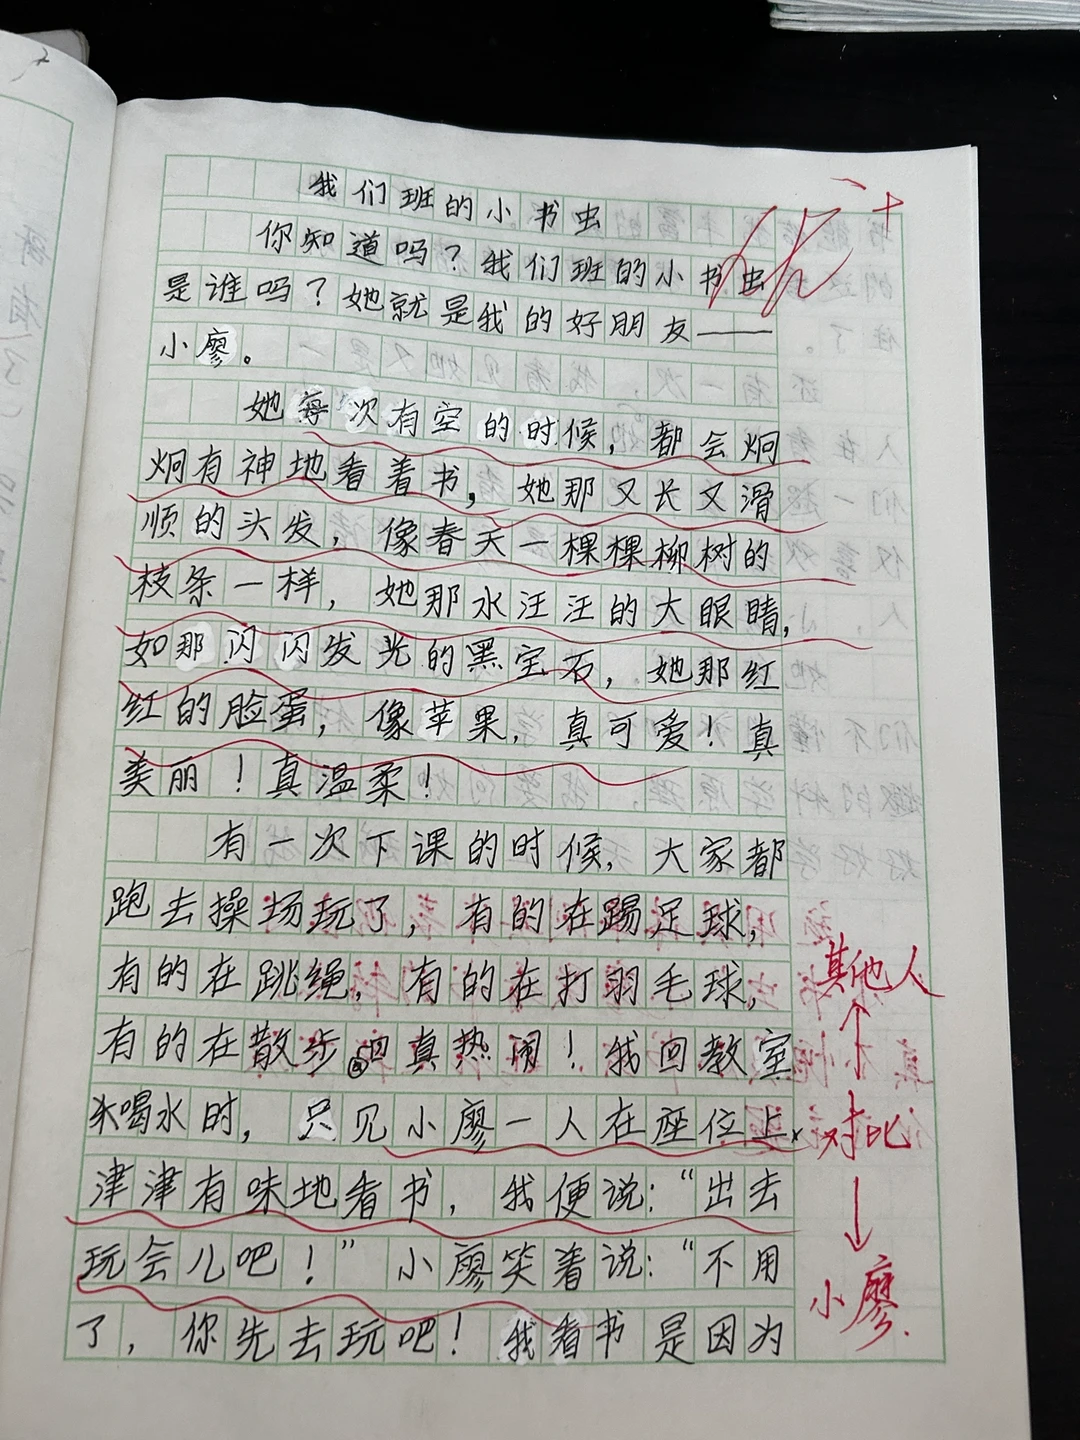 我们班的小书虫
你知道吗？我们班的小书虫
是谁吗？她就是我的好朋友——
小廖。
她每次有空的时候，都会炯
炯有神地看着书，她那又长又滑
顺的头发，像春天一棵棵柳树的
枝条一样，她那水汪汪的大眼睛，
如那闪闪发光的黑宝石，她那红
红的脸蛋，像苹果，真可爱！真
美丽！真温柔！
有一次下课的时候，大家都
跑去操场玩了，有的在踢足球，
有的在跳绳，有的在打羽毛球，
有的在散步。真热闹！我回教室
喝水时，只见小廖一人在座位上
津津有味地看书，我便说：“出去
玩会儿吧！”小廖笑着说：“不用
了，你先去玩吧！我看书是因为
其他人
对比
小廖.